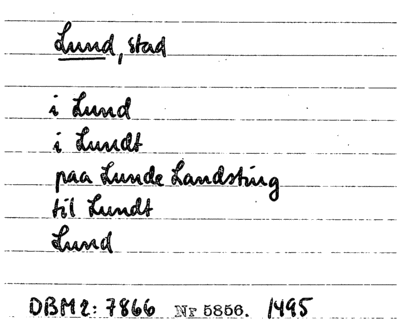 Lund, stad
i Lund
i Lundt
paa Lunde Landsting
til Lundt
Lund
DBM2: 7866 Nr 5856. 1495